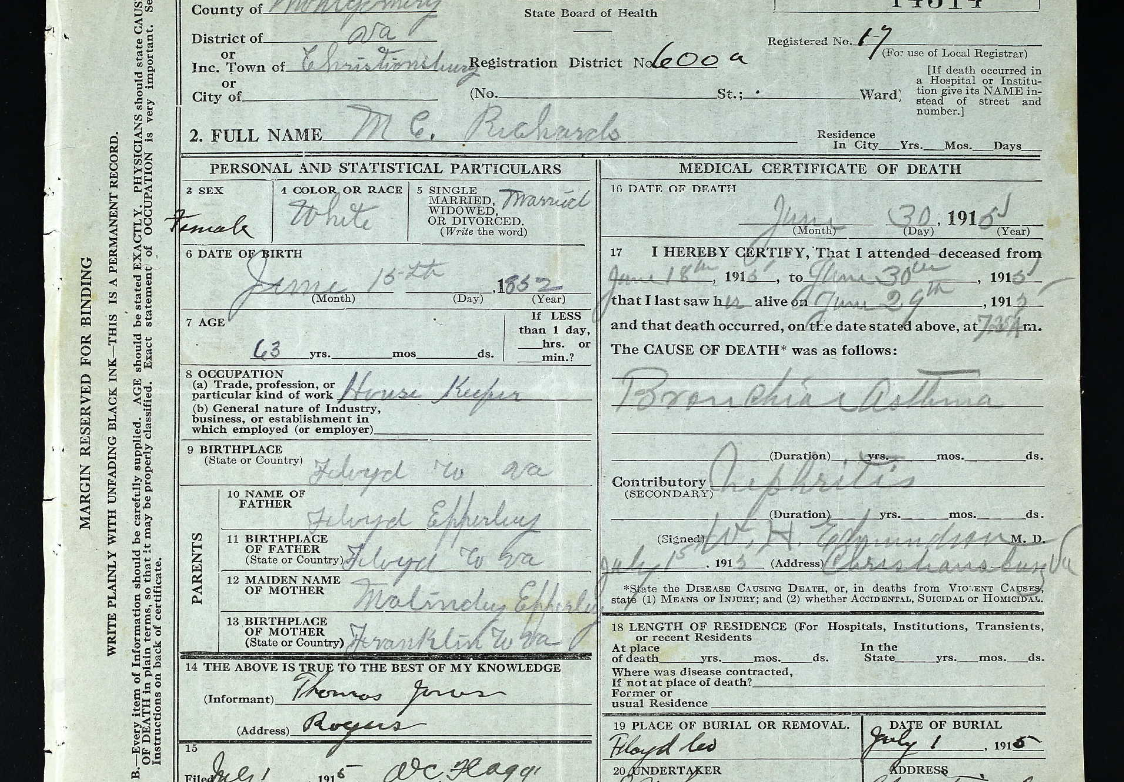 County of Montgomery
State Board of Health
14514
District of Va
or
Inc. Town of Christiansburg Registration District No. 600 a
Registered No. 17
(For use of Local Registrar)
or
City of (No. St.; Ward)
[If death occurred in
a Hospital or Institu-
tion give its NAME in-
stead of street and
number.]
2. FULL NAME M C. Richards
Residence
In City Yrs. Mos. Days
PERSONAL AND STATISTICAL PARTICULARS
3 SEX
Female
4 COLOR OR RACE
White
5 SINGLE
MARRIED,
WIDOWED,
OR DIVORCED.
(Write the word)
Married
6 DATE OF BIRTH
June 15th, 1852
(Month) (Day) (Year)
7 AGE
63 yrs. mos ds.
If LESS
than 1 day,
hrs. or
min.?
8 OCCUPATION
(a) Trade, profession, or
particular kind of work House Keeper
(b) General nature of Industry,
business, or establishment in
which employed (or employer)
9 BIRTHPLACE
(State or Country) Floyd Co Va
PARENTS
10 NAME OF
FATHER
Floyd Epperley
11 BIRTHPLACE
OF FATHER
(State or Country) Floyd Co Va
12 MAIDEN NAME
OF MOTHER
Malindy Epperley
13 BIRTHPLACE
OF MOTHER
(State or Country) Franklin Co Va
14 THE ABOVE IS TRUE TO THE BEST OF MY KNOWLEDGE
(Informant) Thomas Jones
(Address) Rogers
15
Filed July 1 1915
MEDICAL CERTIFICATE OF DEATH
16 DATE OF DEATH
June 30, 1915
(Month) (Day) (Year)
17 I HEREBY CERTIFY, That I attended deceased from
June 18th, 1915, to June 30th, 1915
that I last saw her alive on June 29th, 1915
and that death occurred, on the date stated above, at m.
The CAUSE OF DEATH* was as follows:
Bronchial Asthma
(Duration) yrs. mos. ds.
Contributory Nephritis
(SECONDARY)
(Duration) yrs. mos. ds.
(Signed) W. H. Edmundson M. D.
July 1st, 1915 (Address) Christiansburg Va
*State the DISEASE CAUSING DEATH, or, in deaths from VIOLENT CAUSES,
state (1) MEANS OF INJURY; and (2) whether ACCIDENTAL, SUICIDAL or HOMICIDAL.
18 LENGTH OF RESIDENCE (For Hospitals, Institutions, Transients,
or recent Residents
At place
of death yrs. mos. ds.
In the
State yrs. mos. ds.
Where was disease contracted,
If not at place of death?
Former or
usual Residence
19 PLACE OF BURIAL OR REMOVAL.
Floyd Co
DATE OF BURIAL
July 1, 1915
20 UNDERTAKER
ADDRESS
MARGIN RESERVED FOR BINDING
WRITE PLAINLY WITH UNFADING BLACK INK—THIS IS A PERMANENT RECORD.
B.—Every item of Information should be carefully supplied. AGE should be stated EXACTLY. PHYSICIANS should state CAUS
OF DEATH in plain terms, so that it may be properly classified. Exact statement of OCCUPATION is very important. Se
Instructions on back of certificate.